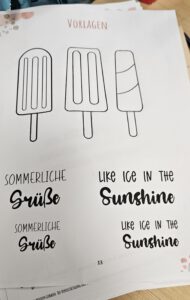 VORLAGEN
SOMMERLICHE
Grüße
LIKE ICE IN THE
Sunshine
SOMMERLICHE
Grüße
LIKE ICE IN THE
Sunshine
33